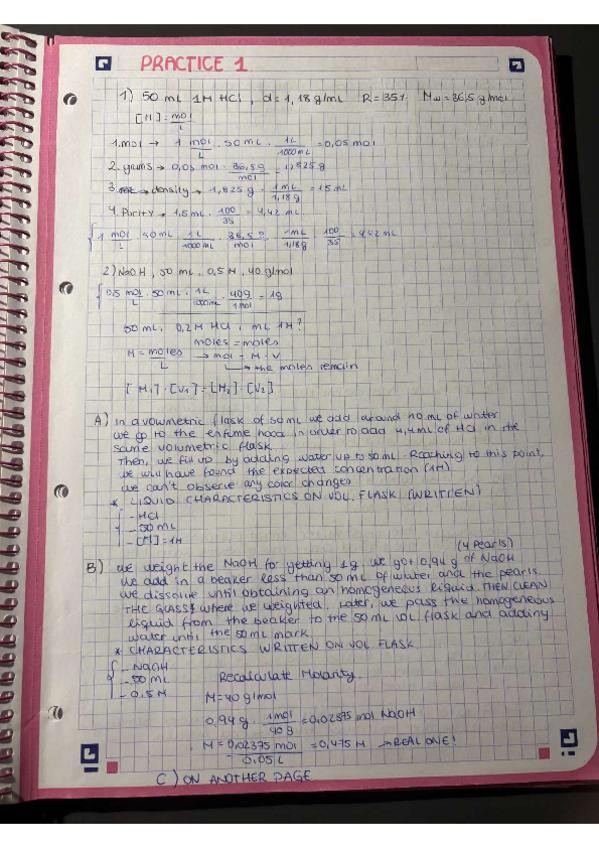 PRACTICE 1
1) 50 mL 1M HCl , d = 1,18 g/mL R = 35% Mw = 36,5 g/mol
[M] = mol / L
1. mol → 1 mol/L · 50 mL · 1L/1000mL = 0,05 mol
2. grams → 0,05 mol · 36,5g/mol = 1,825 g
3. → density → 1,825 g · 1mL/1,18g = 1,5 mL
4. Purity → 1,5 mL · 100/35 = 4,42 mL
{ 1 mol/L · 50mL · 1L/1000mL · 36,5g/mol · 1mL/1,18g · 100/35 = 4,42 mL
2) NaOH , 50 mL , 0,5 M , 40 g/mol
{ 0,5 mol/L · 50 mL · 1L/1000mL · 40g/1mol = 1g
50 mL , 0,2M HCl , mL 1M?
moles = moles
M = moles/L → mol = M · V
→ the moles remain
[M1] · [V1] = [M2] · [V2]
A) in a volumetric flask of 50 mL we add around 10 mL of water
we go to the enfume hood in order to add 4,4 mL of HCl in the
same volumetric flask
Then, we fill up by adding water up to 50 mL. Reaching to this point,
we will have found the expected concentration (1M)
we can't observe any color changes
* LIQUID CHARACTERISTICS ON VOL. FLASK (WRITTEN)
- HCl
- 50 mL
- [M] = 1M
(4 Pearls)
B) we weight the NaOH for getting 1g. we got 0,94 g of NaOH
we add in a beaker less than 50 mL of water and the pearls.
we dissolve until obtaining an homogeneous liquid. THEN CLEAN
THE GLASS where we weighted. Later, we pass the homogeneous
liquid from the beaker to the 50 mL vol flask and adding
water until the 50 mL mark.
* CHARACTERISTICS WRITTEN ON VOL FLASK
- NaOH
- 50 mL
- 0,5 M
Recalculate Molarity.
M = 40 g/mol
0,94 g · 1mol/40 g = 0,02375 mol NaOH
M = 0,02375 mol / 0,05 L = 0,475 M → REAL ONE!
C) ON ANOTHER PAGE